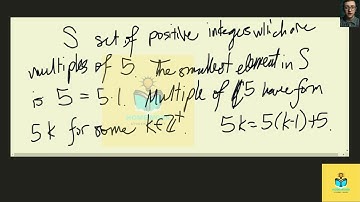 S set of positive integers which are
multiples of 5. The smallest element in S
is 5 = 5·1. Multiple of 5 have form
5k for some k∈ℤ⁺. 5k = 5(k-1)+5.